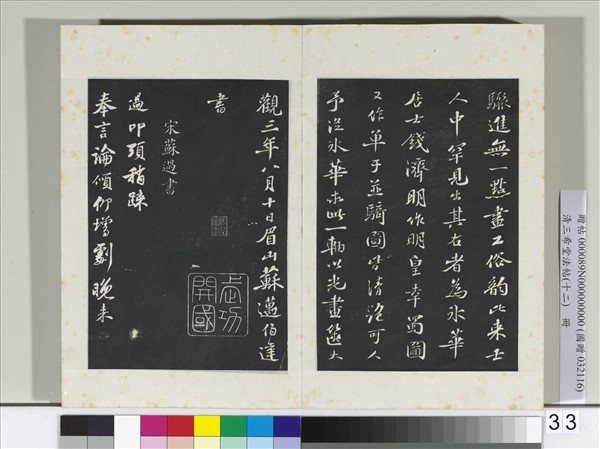 聯進無一點畫工俗韵比来士
人中罕見出其右者為冰華
居士錢濟明作明皇幸蜀圖
又作單于並騎圖皆清潤可人
予從冰華求此一軸以光畫篋大
觀三年八月十日眉山蘇邁伯達
書
宋蘇過書
過叩頭稍疎
奉言論傾仰增劇晚来
武功開國
贈帖 000089N000000000 (國贈 032116)
清三希堂法帖(十二) 冊
33